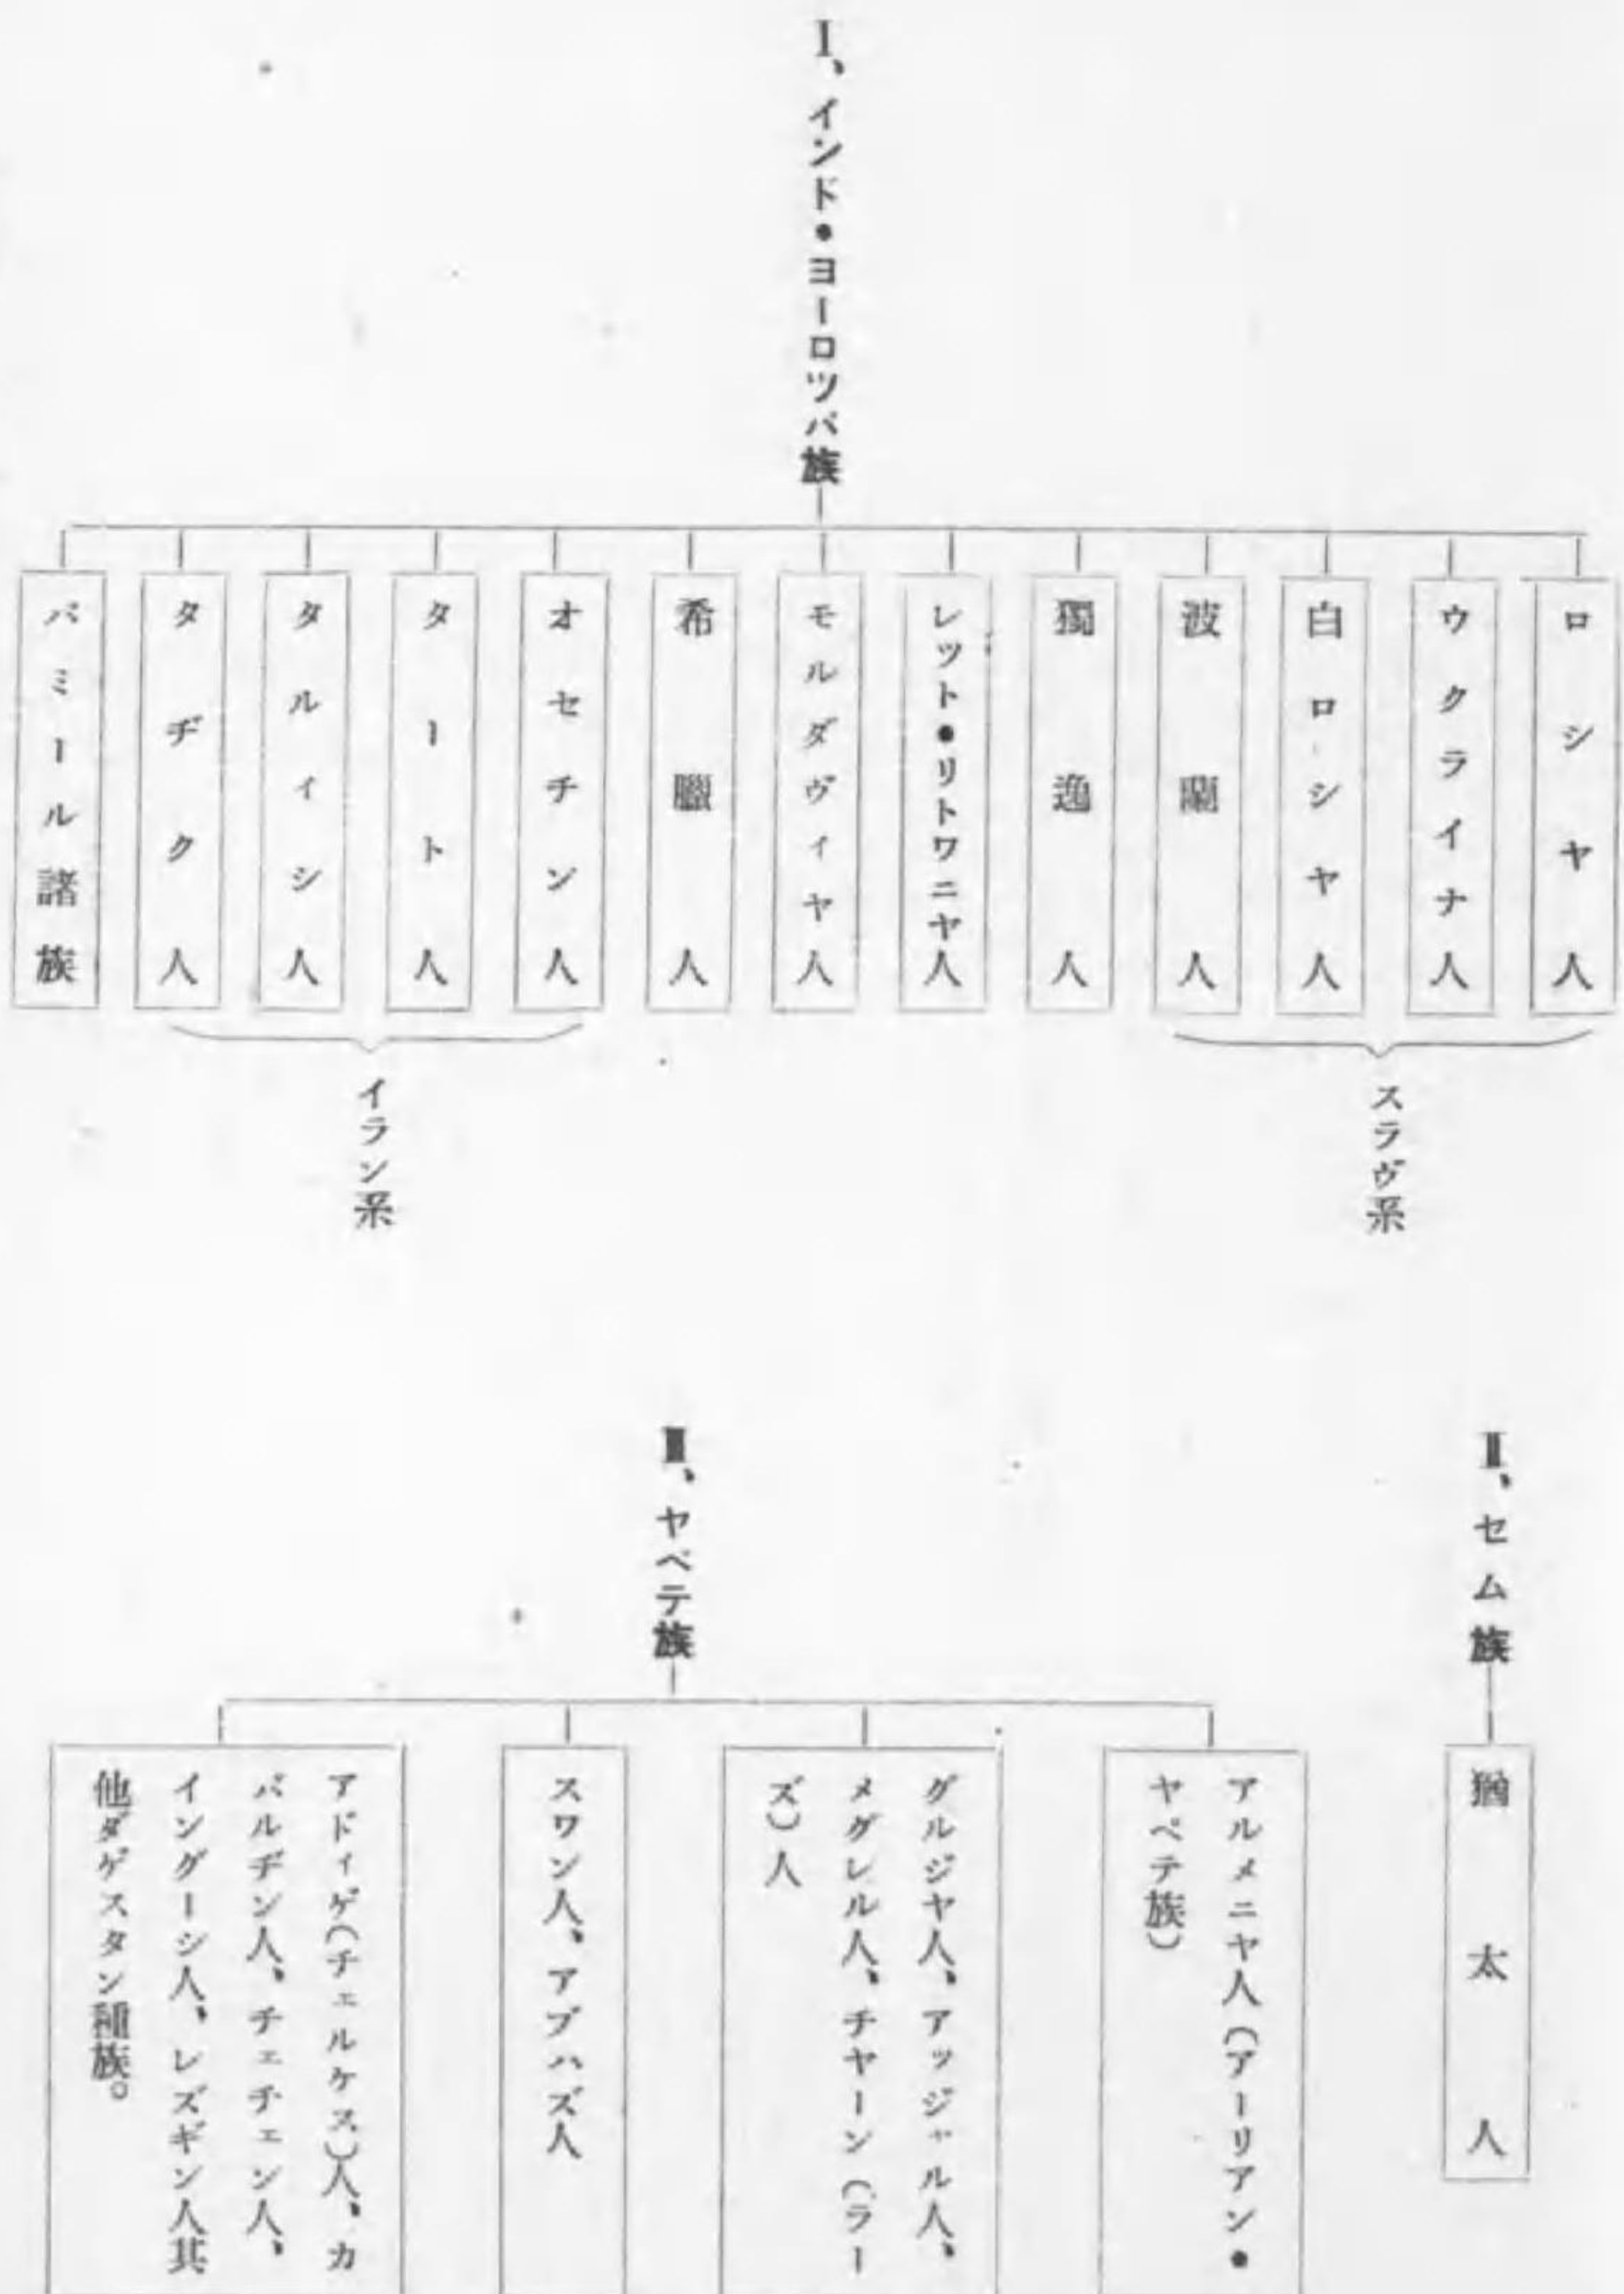 I、インド・ヨーロツパ族
ロシヤ人
ウクライナ人
白ロシヤ人
波蘭人
獨逸人
レット・リトワニヤ人
モルダヴィヤ人
希臘人
オセチン人
タート人
タルイシ人
タヂク人
パミール諸族
スラヴ系
イラン系
II、セム族
猶太人
III、ヤペテ族
アルメニヤ人（アーリアン・
ヤペテ族）
グルジヤ人、アッジャル人、
メグレル人、チヤーン（ラー
ズ）人
スワン人、アブハズ人
アドィゲ（チェルケス）人、カ
バルヂン人、チェチェン人、
イングーシ人、レズギン人其
他ダゲスタン種族。